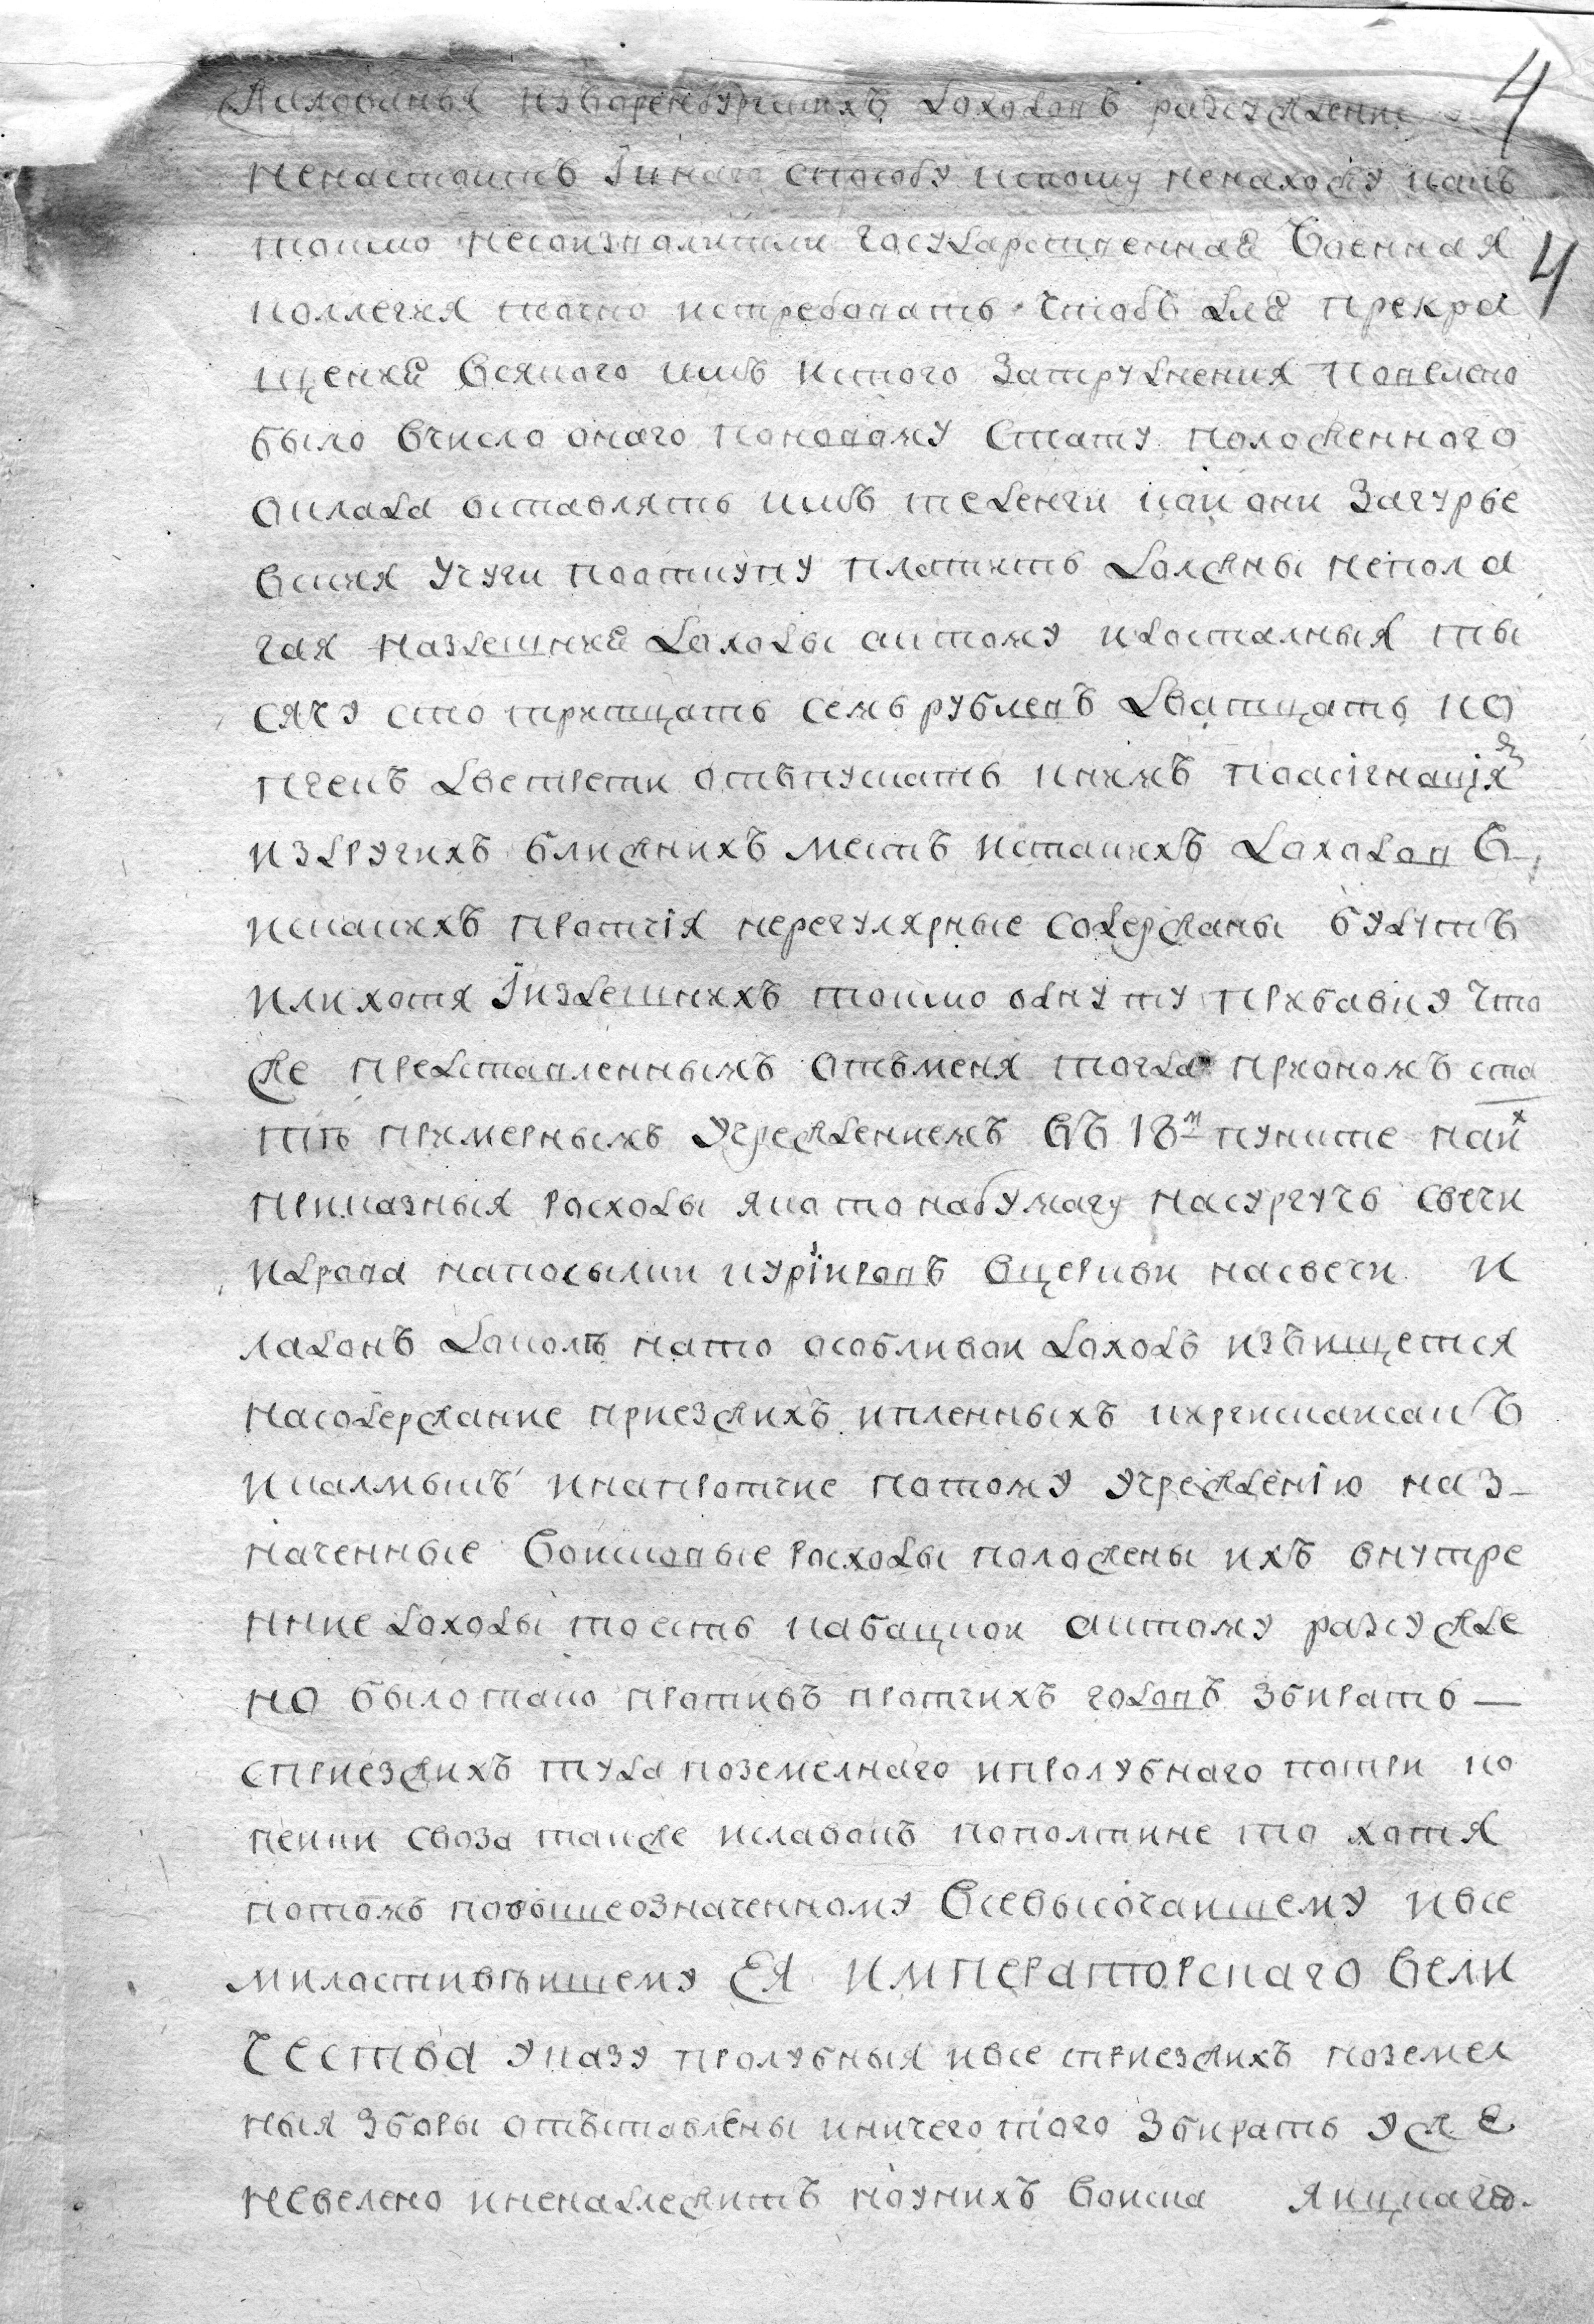 4
жалованья изворенбургскихъ доходовъ разсуждение
ненастоитъ Iинаго способу истому ненахожу какъ
токмо несоизволитли государственная Военная
коллегия точно истребовать чтобъ для прекра
щения всякого имъ истого Затруднения Повелено
было вчисло онаго поновому Стату положенного
оклада оставлять имъ теденги кои они Загурье
вския учуги пооткупу платить должны непола
гая наздешния доходы аитому идосталныя ты
сячу сто тритцать семь рублевъ дватцать ко
пеекъ сотрети отъпускать книмъ поасiгнацiя
издругихъ ближнихъ местъ истакихъ доходовъ
искакихъ протчiя нерегулярные содержаны будутъ
или хотя Iиздешнихъ токмо одну ту прибавку что
же представленнымъ отъменя тогда приономъ ста
тѣ примернымъ Учреждениемъ въ 18м пункте на
приказныя росходы яко то набумагу насургучь свечи
идрова напосылки курiеровъ вцеркви насвечи и
ладонъ доколѣ нато особливои доходъ изъищется
насодержание приезжихъ ипленныхъ икиргискаисакъ
икалмыкъ инапротчие потому учреждению наз-
наченные Воисковые росходы положены ихъ внутре
нние доходы тоесть кабацкои аитому разсужде
но было тако противъ протчихъ годовъ збирать —
сприезжихъ туда поземелнаго ипролубнаго потри ко
пеики своза также иславокъ пополтине то хотя
потомъ повышеозначенному Всевысочаишему ивсе
милостивѣишему Ея Императорскаго Вели
чества указу пролубныя ивсе сприезжихъ поземел
ныя Зборы отъставлены иничего того Збирать уже
невелено иненадлежитъ ноуних Воиска Яицкаго
4